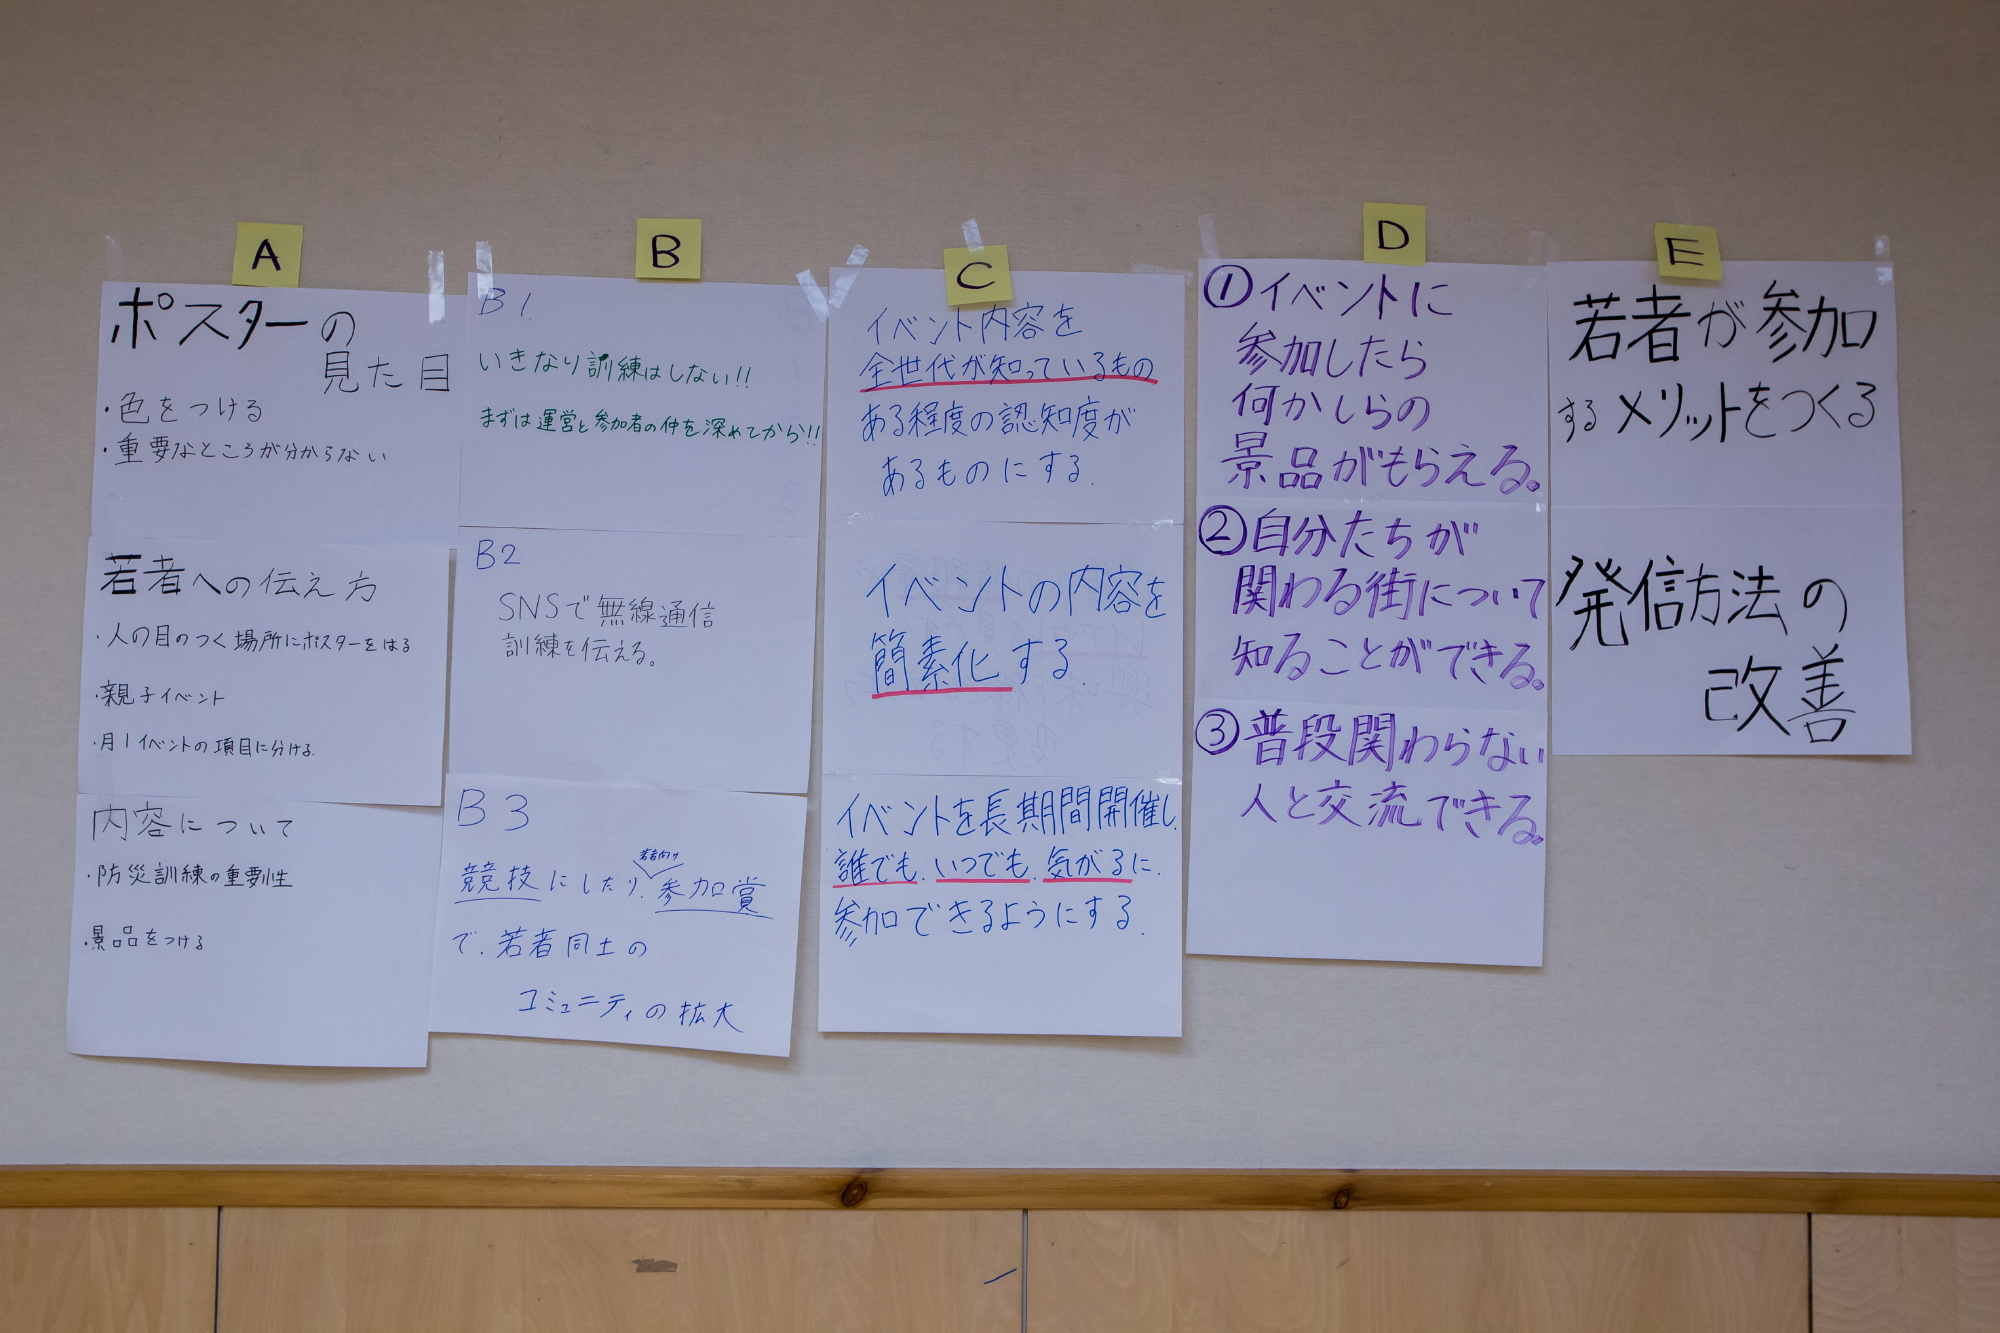 A
ポスターの
見た目
・色をつける
・重要なところが分からない
若者への伝え方
・人の目のつく場所にポスターをはる
・親子イベント
・月1イベントの項目に分ける
内容について
・防災訓練の重要性
・景品をつける
B
B1
いきなり訓練はしない!!
まずは運営と参加者の仲を深めてから!!
B2
SNSで無線通信
訓練を伝える。
B3
若者向け
競技にしたり、参加賞
で、若者同士の
コミュニティの拡大
C
イベント内容を
全世代が知っているもの
ある程度の認知度が
あるものにする.
イベントの内容を
簡素化する.
イベントを長期間開催し、
誰でも、いつでも、気がるに、
参加できるようにする.
D
①イベントに
参加したら
何かしらの
景品がもらえる。
②自分たちが
関わる街について
知ることができる。
③普段関わらない
人と交流できる。
E
若者が参加
するメリットをつくる
発信方法の
改善